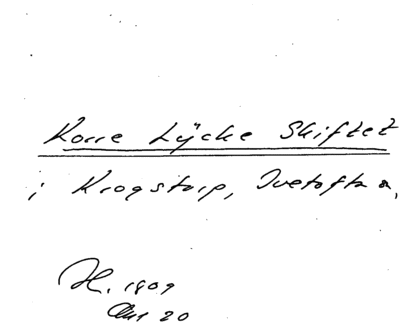 Korre Lycke Skiftet
i Krogstorp, Ivetofta
H. 1809
20